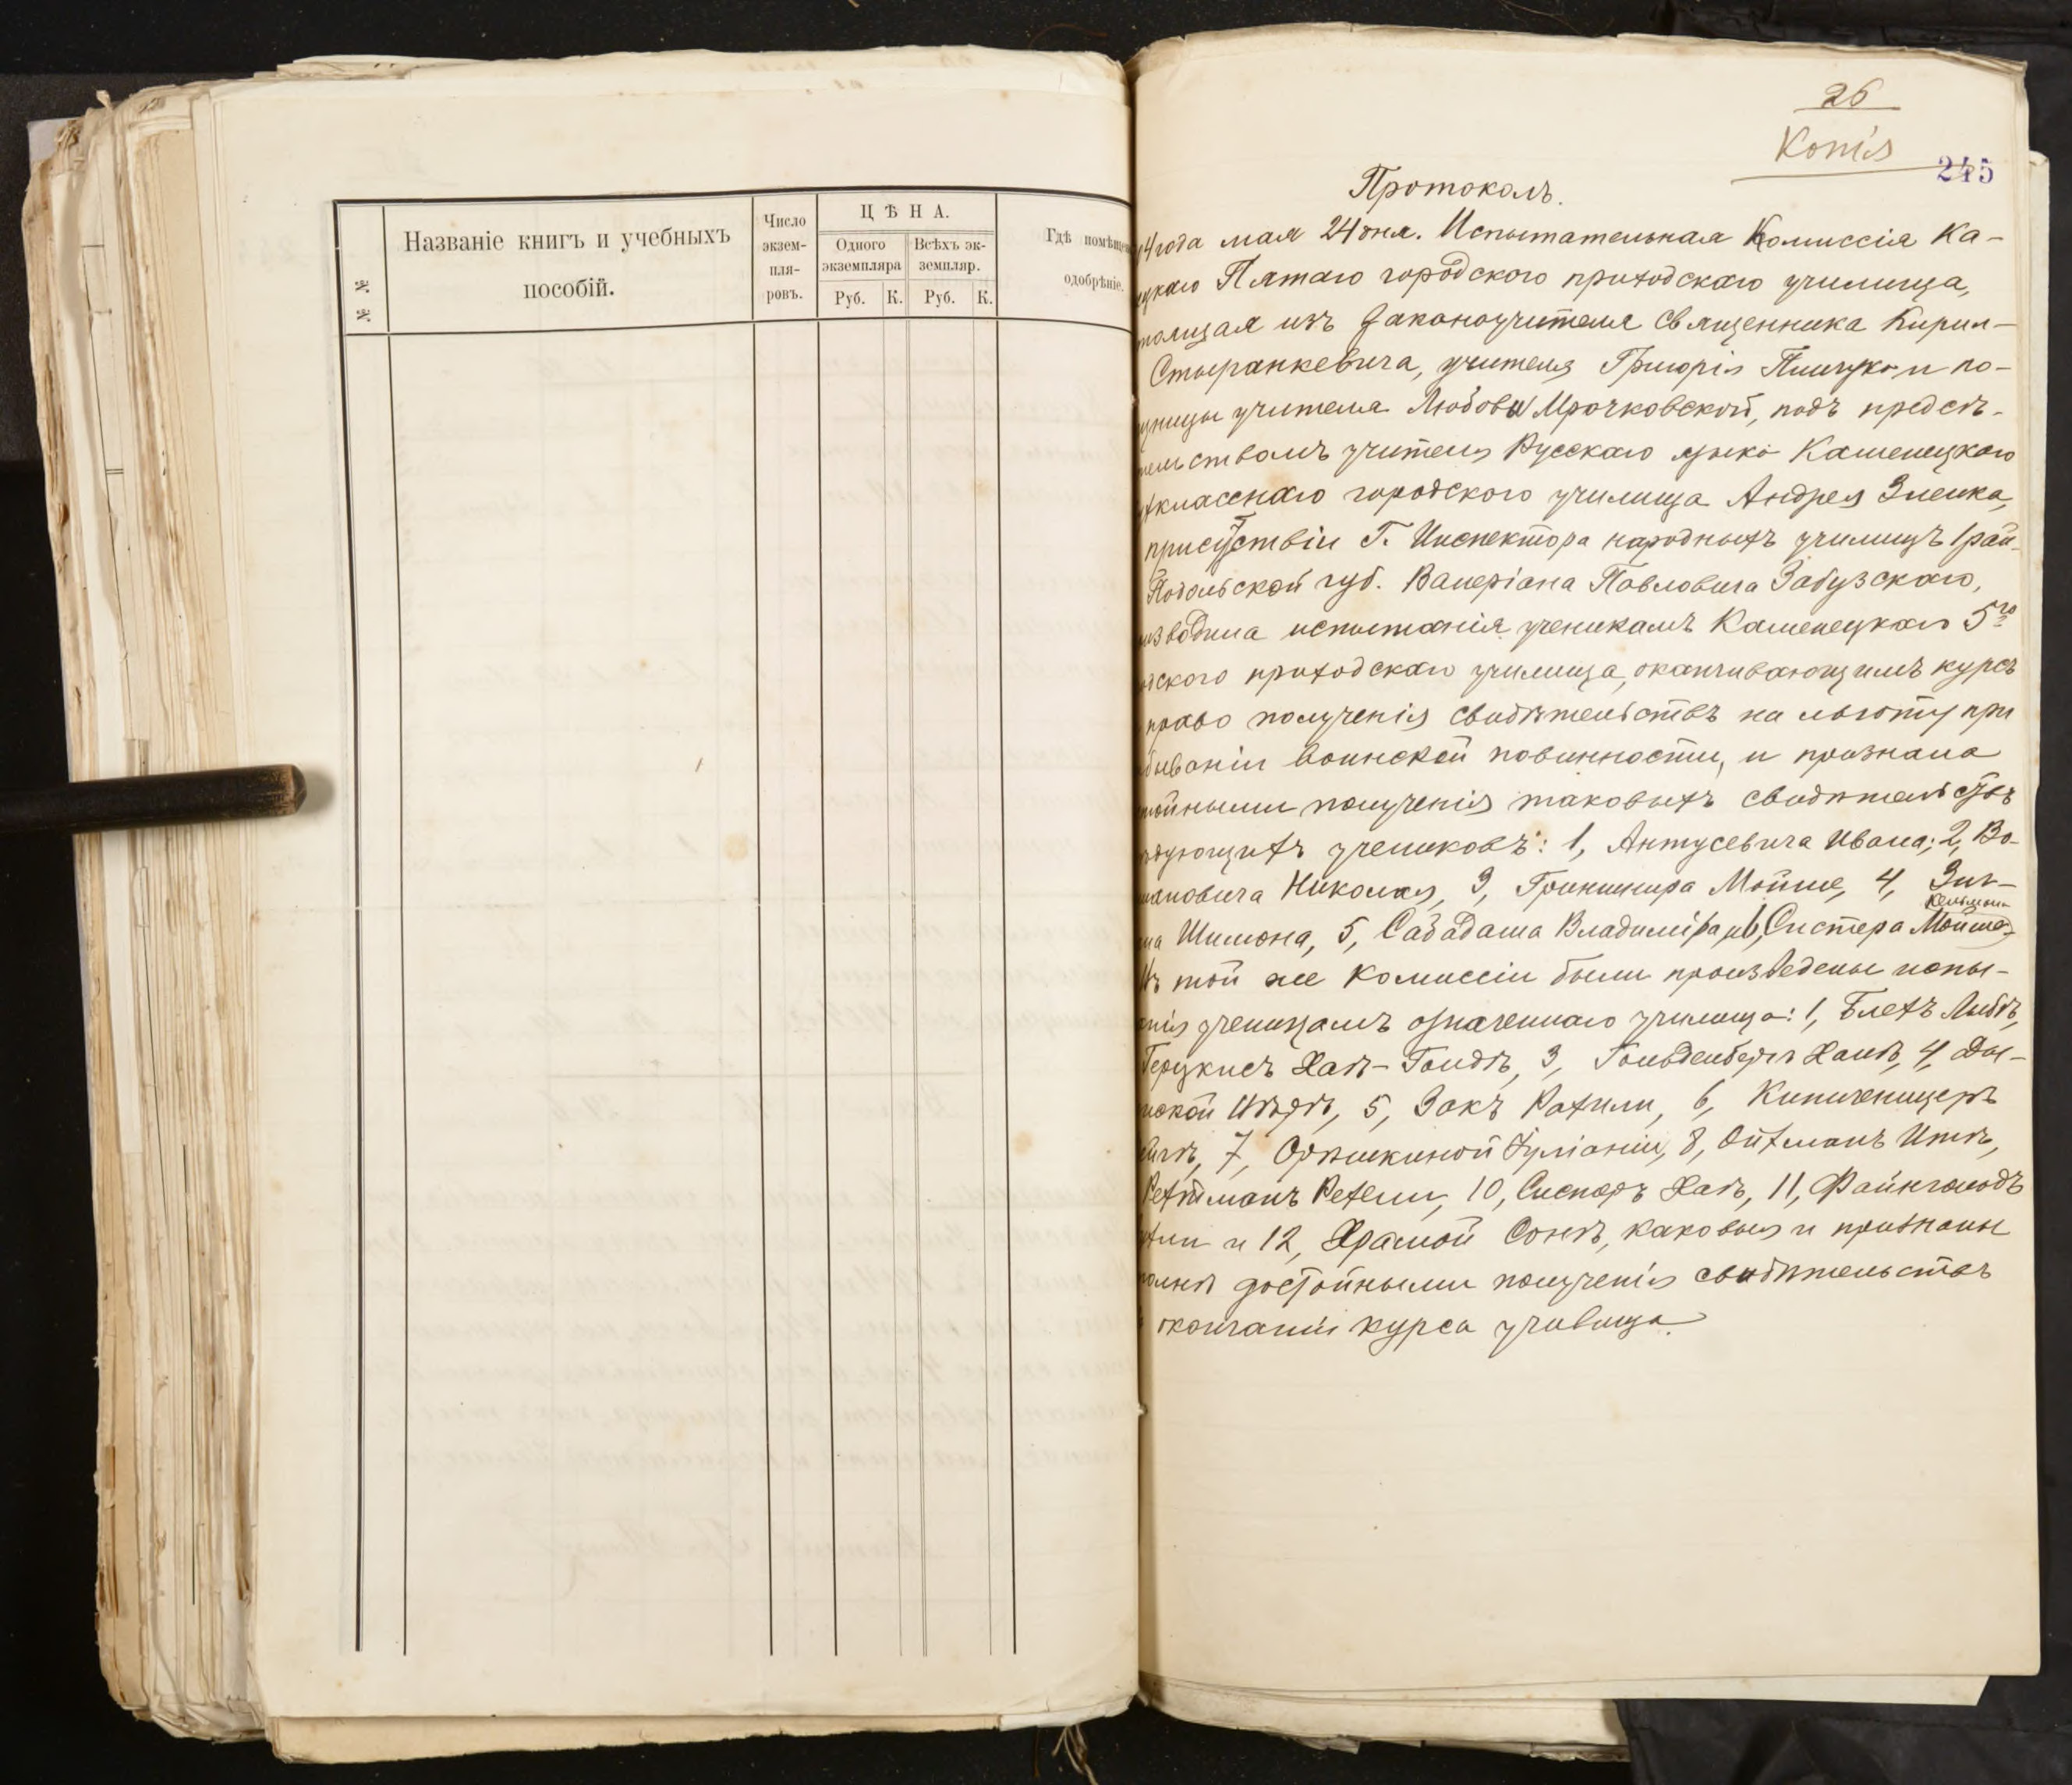 № №
Названіе книгъ и учебныхъ
пособій.
Число
экзем-
пля-
ровъ.
ЦѢНА.
Одного
экземпляра
Всѣхъ эк-
земпляр.
Руб. К. Руб. К.
Гдѣ помѣще
одобрѣніе.
26
Копія
245
Протоколъ.
4 года мая 24 дня. Испытательная Комиссія Ка-
цкаго Пятаго городского приходскаго училища,
тоящая изъ Законоучителя Священника Кирил-
Стыранкевича, учителя Григорія и по-
щницы учителя Любови Мрочковской, подъ предсѣ-
тельствомъ учителя Русскаго языка Каменецкаго
хкласснаго городского училища Андрея Зленка,
присутствіи Г. Инспектора народныхъ училищъ 1 рай-
Подольской губ. Валеріана Павловича Забузскаго,
изводила испытанія ученикамъ Каменецкаго 5го
дского приходскаго училища, оканчивающимъ курсъ
право полученія свидѣтельствъ на льготу при
бываніи воинской повинности, и признала
тойными полученія таковыхъ свидѣтельствъ
дующихъ учениковъ: 1, Антусевича Ивана; 2, Во-
мановича Николая, 3, Гриншпира Мойше, 4, Зиг-
Кельмана
на Шимона, 5, Сабадаша Владиміра и 6, Систера Мойше-
Въ той же Комиссіи были произведены испы-
анія ученицамъ означеннаго училища: 1, Блехъ Либѣ,
Герцкисъ Хаѣ-Голдѣ, 3, Гольденбергъ Ханѣ, 4, Ды-
нской 5, Закъ Рахили, 6, Кипиченицеръ
7, Орѣшкиной Іуліаніи, 8, Ойхманъ Итѣ,
Рехтманъ Рехели, 10, Сиснеръ Хаѣ, 11, Файнгольдъ
хли и 12, Храмой Сонѣ, каковыя и признаны
олнѣ достойными полученія свидѣтельствъ
окончаніи курса училища.